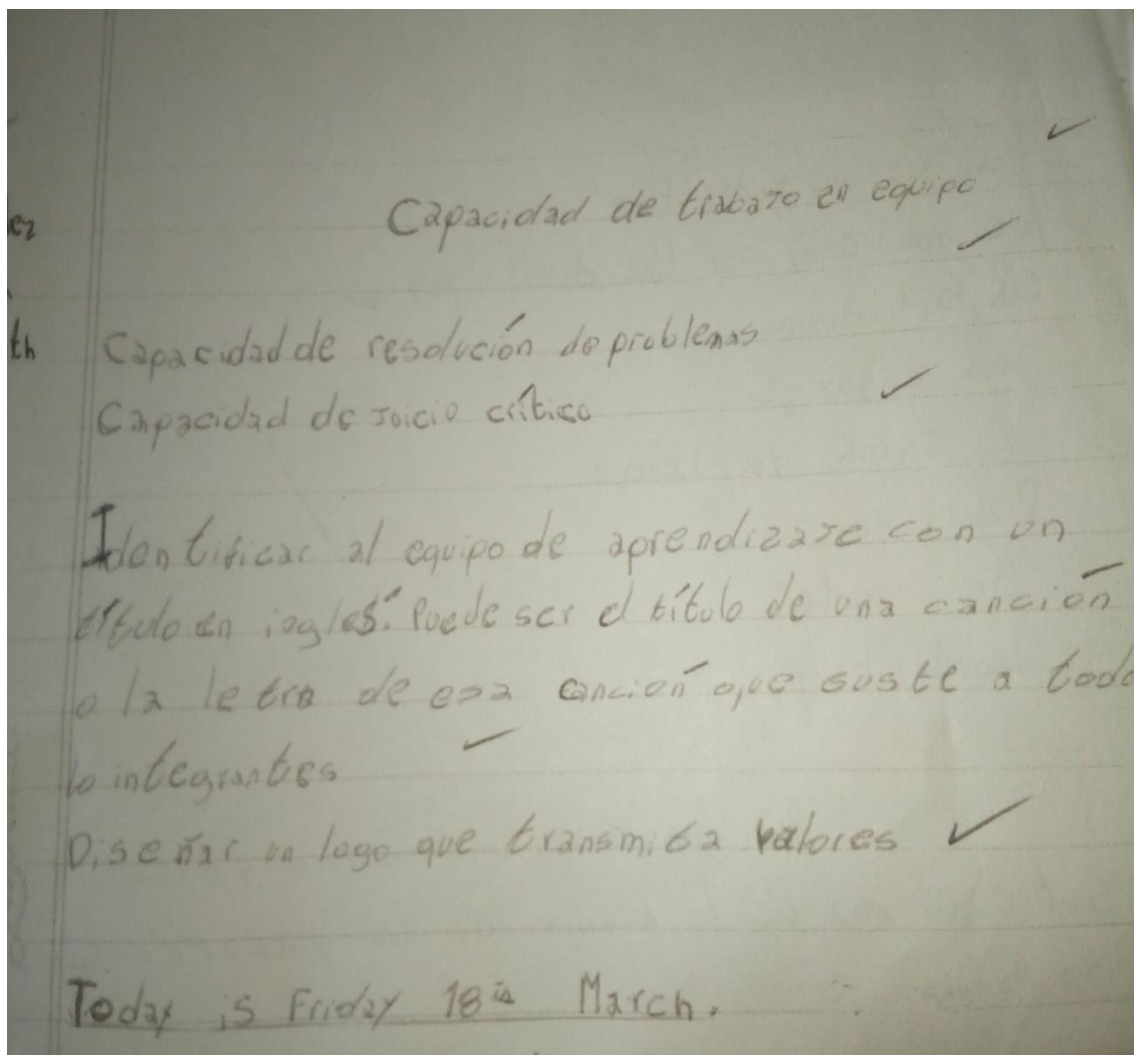 Capacidad de trabajo en equipo
ez
th Capacidad de resolución de problemas
Capacidad de juicio crítico
Identificar al equipo de aprendizaje con un
título en inglés. Puede ser el título de una canción
o la letra de esa canción que guste a todo
lo integrantes
Diseñar un logo que transmita valores
Today is Friday 18th March.